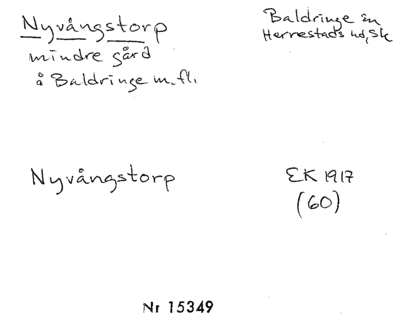 Nyvångstorp
mindre gård
å Baldringe m.fl.
Baldringe sn
Herrestads hd, Sk
Nyvångstorp
EK 1917
(60)
Nr 15349